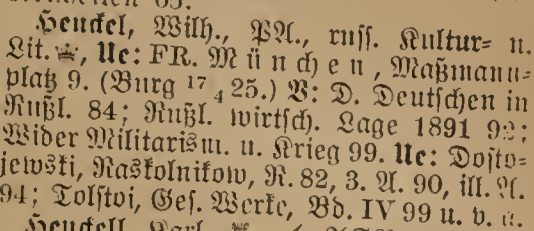 Henckel, Wilh., PA., russ. Kultur= u.
Lit. Ue: FR. München, Maßmann=
platz 9. (Burg 17/4 25.) V: D. Deutschen in
Rußl. 84; Rußl. wirtsch. Lage 1891 92;
Wider Militarism. u. Krieg 99. Ue: Dosto=
jewski, Raskolnikow, R. 82, 3. A. 90, ill. A.
94; Tolstoi, Ges. Werke, Bd. IV 99 u. v. a.
Henckell, Karl,